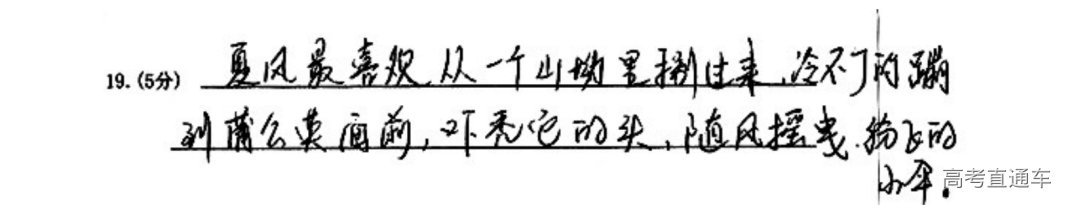 19.(5分) 夏风最喜欢从一个山坳里捌过来,冷不丁的蹦
到蒲公英面前,吓秃它的头,随风摇曳.纷飞的
小伞。
高考直通车